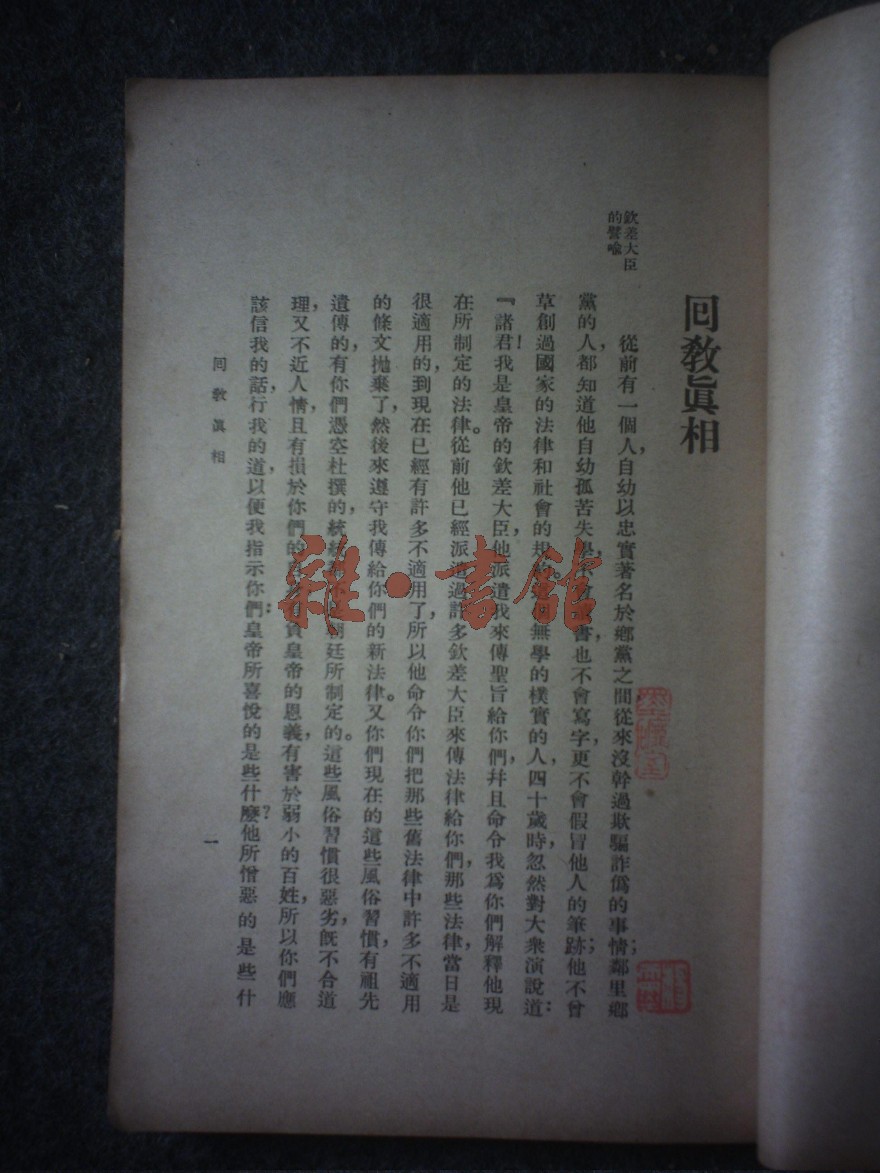 回敎眞相
欽差大臣
的譬喩
從前有一個人,自幼以忠實著名於鄕黨之間從來沒幹過欺騙詐僞的事情;鄰里鄕
黨的人,都知道他自幼孤苦失學,書,也不會寫字,更不會假冒他人的筆跡;他不曾
草創過國家的法律和社會的規無學的樸實的人,四十歲時,忽然對大衆演說道:
『諸君!我是皇帝的欽差大臣,他派遣我來傳聖旨給你們,幷且命令我爲你們解釋他現
在所制定的法律。從前他已經派遣過許多欽差大臣來傳法律給你們,那些法律,當日是
很適用的,到現在已經有許多不適用了,所以他命令你們把那些舊法律中許多不適用
的條文拋棄了,然後來遵守我傳給你們的新法律。又你們現在的這些風俗習慣,有祖先
遺傳的,有你們憑空杜撰的,統朝廷所制定的。這些風俗習慣很惡劣,旣不合道
理,又不近人情,且有損於你們的負皇帝的恩義,有害於弱小的百姓,所以你們應
該信我的話,行我的道,以便我指示你們:皇帝所喜悅的是些什麽?他所憎惡的是些什
回敎眞相
一
雜·書館